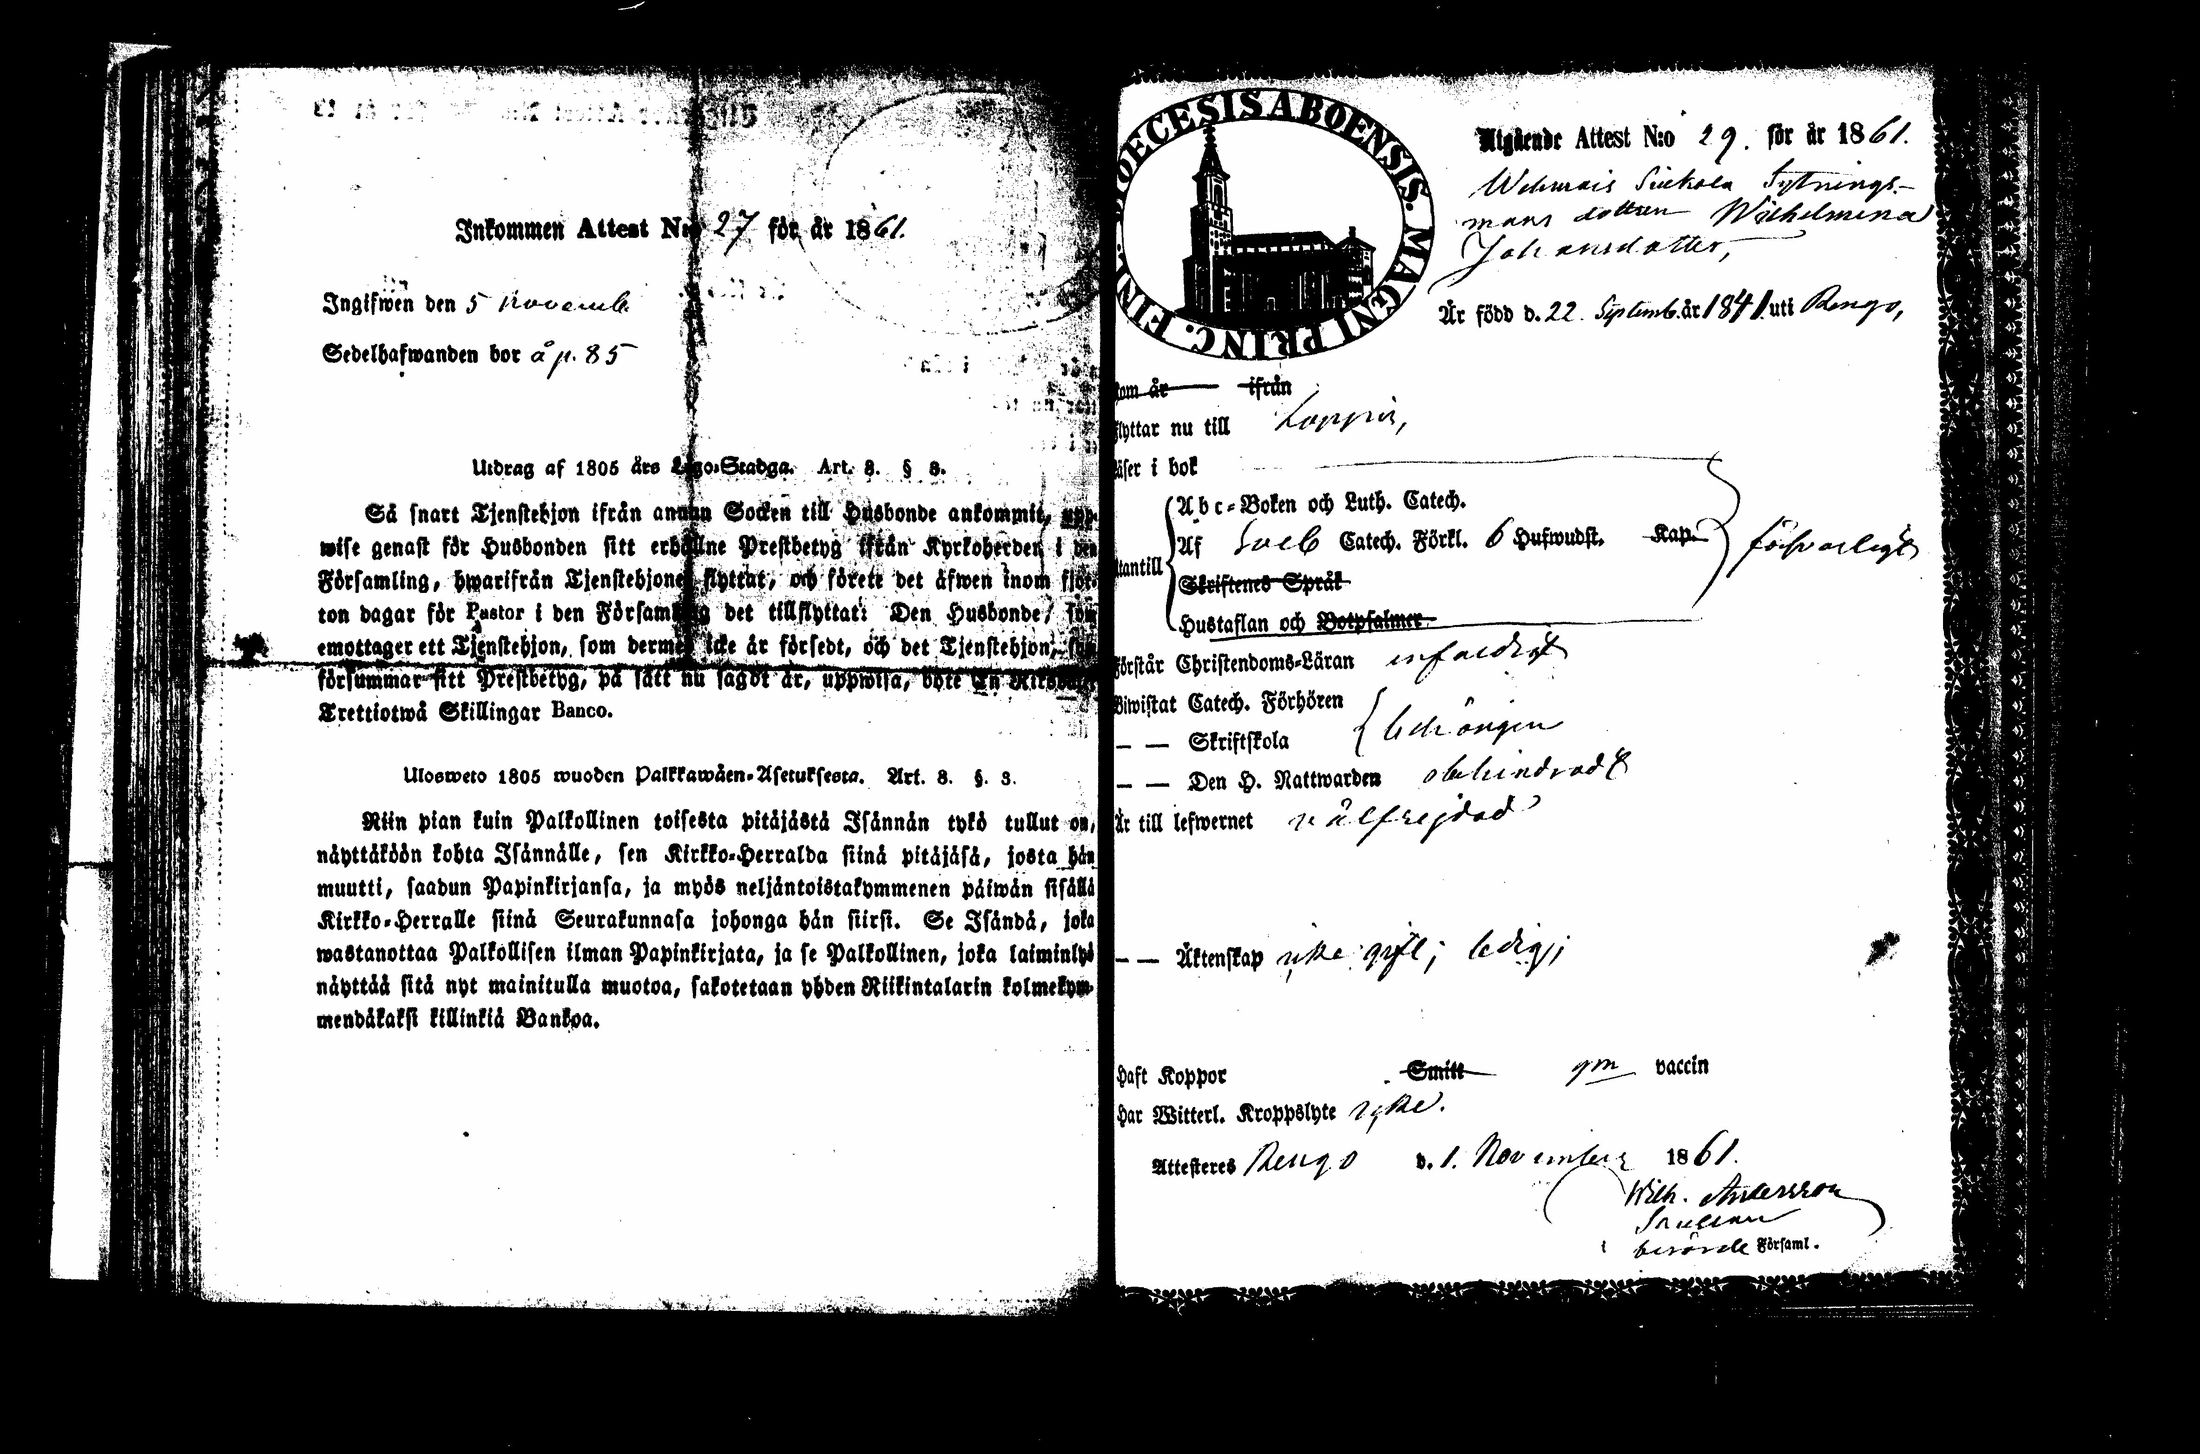 Inkommen Attest N:o 27 för år 1861.
Ingifwen den 5 novemb.
Sedelhafwanden bor å p. 85
Utdrag af 1805 års Lego-Stadga. Art. 8. § 8.
Så snart Tjenstehjon ifrån annan Socken till Husbonde ankommit, upp-
wise genast för Husbonden sitt erhållne Prestbetyg ifrån Kyrkoherden i den
Församling, hwarifrån Tjenstehjonet flyttat, och förete det äfwen inom fjor-
ton dagar för Pastor i den Församling det tillflyttat: Den Husbonde, som
emottager ett Tjenstehjon, som dermed icke är försedt, och det Tjenstehjon, som
försummar sitt Prestbetyg, på sätt nu sagdt är, uppwisa, böte En Riksdaler
Trettiotwå Skillingar Banco.
Ulosweto 1805 wuoden Palkkawäen-Asetuksesta. Art. 8. §. 8.
Niin pian kuin Palkollinen toisesta pitäjästä Isännän tykö tullut on,
näyttäköön kohta Isännälle, sen Kirkko-Herralda siinä pitäjäsä, josta hän
muutti, saadun Papinkirjansa, ja myös neljäntoistakymmenen päiwän sisällä
Kirkko-Herralle siinä Seurakunnasa johonga hän siirsi. Se Isändä, joka
wastanottaa Palkollisen ilman Papinkirjata, ja se Palkollinen, joka laiminlyö
näyttää sitä nyt mainitulla muotoa, sakotetaan yhden Riikintalarin kolmekym-
mendäkaksi killinkiä Bankoa.
DIOECESIS ABOENSIS. MAGNI PRINC. FINL.
Utgående Attest N:o 29. för år 1861.
Sytnings-
mans dottren Wilhelmina
Johansdotter,
Är född d. 22. Septemb. år 1841 uti Rengo,
kom år ifrån
flyttar nu till Loppis,
läser i bok
Abc-Boken och Luth. Catech.
Af Sveb Catech. Förkl. 6 Hufwudst. Kap.
utantill
försvarligt
Skriftenes Språk
Hustaflan och Botpsalmer
förstår Christendoms-Läran enfaldigt
Biwistat Catech. Förhören
— — Skriftskola behörigen
— — Den H. Nattwarden obehindradt
Är till lefwernet välfrejdad
— — Äktenskap icke gift; ledig;
Haft Koppor Smitt gm vaccin
Har Witterl. Kroppslyte icke.
Attesteres Rengo d. 1. November 1861.
Wilh. Andersson
i berörde Församl.